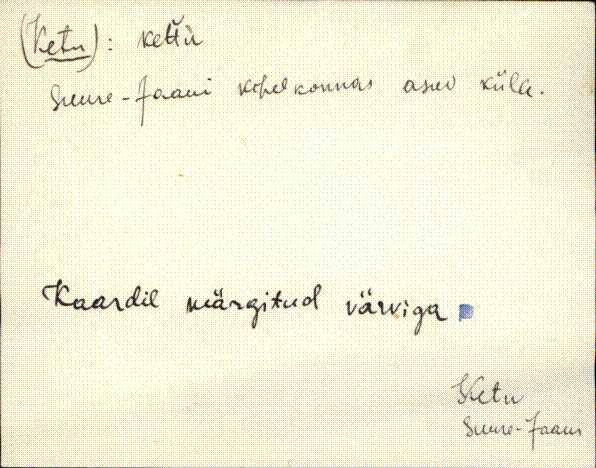 (Ketu): kettü
Suure-Jaani kihelkonnas asuv küla.
Kaardil märgitud värviga
Ketu
Suure-Jaani